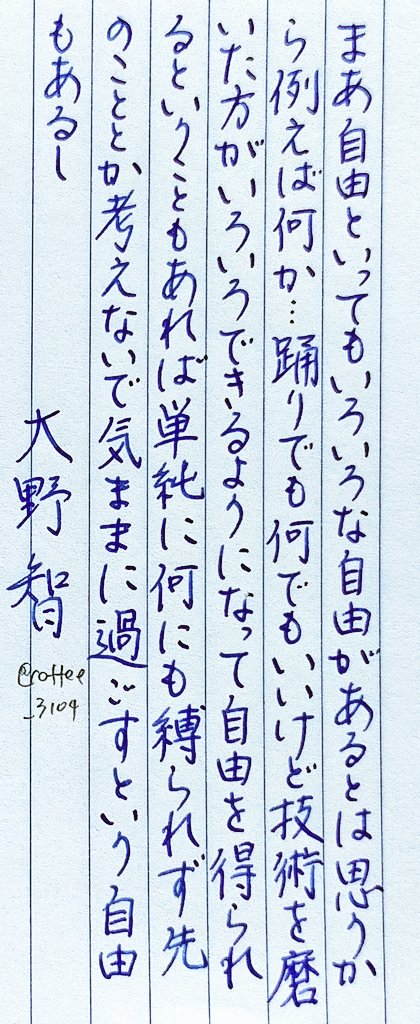 まあ自由といってもいろいろな自由があるとは思うか
ら例えば何か…踊りでも何でもいいけど技術を磨
いた方がいろいろできるようになって自由を得られ
るということもあれば単純に何にも縛られず先
のこととか考えないで気ままに過ごすという自由
もあるし
大野智
@roffee
_3104